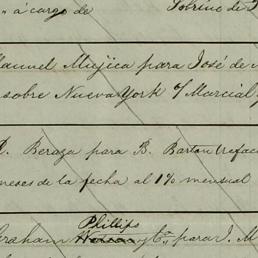 " á cargo de Sobrino de
Manuel Mujica para José de
sobre Nueva York o/ Marcial
Beraza para B. Barton (refac
meses de la fecha al 1% mensual
Phillips
Graham y Ca. para J. M